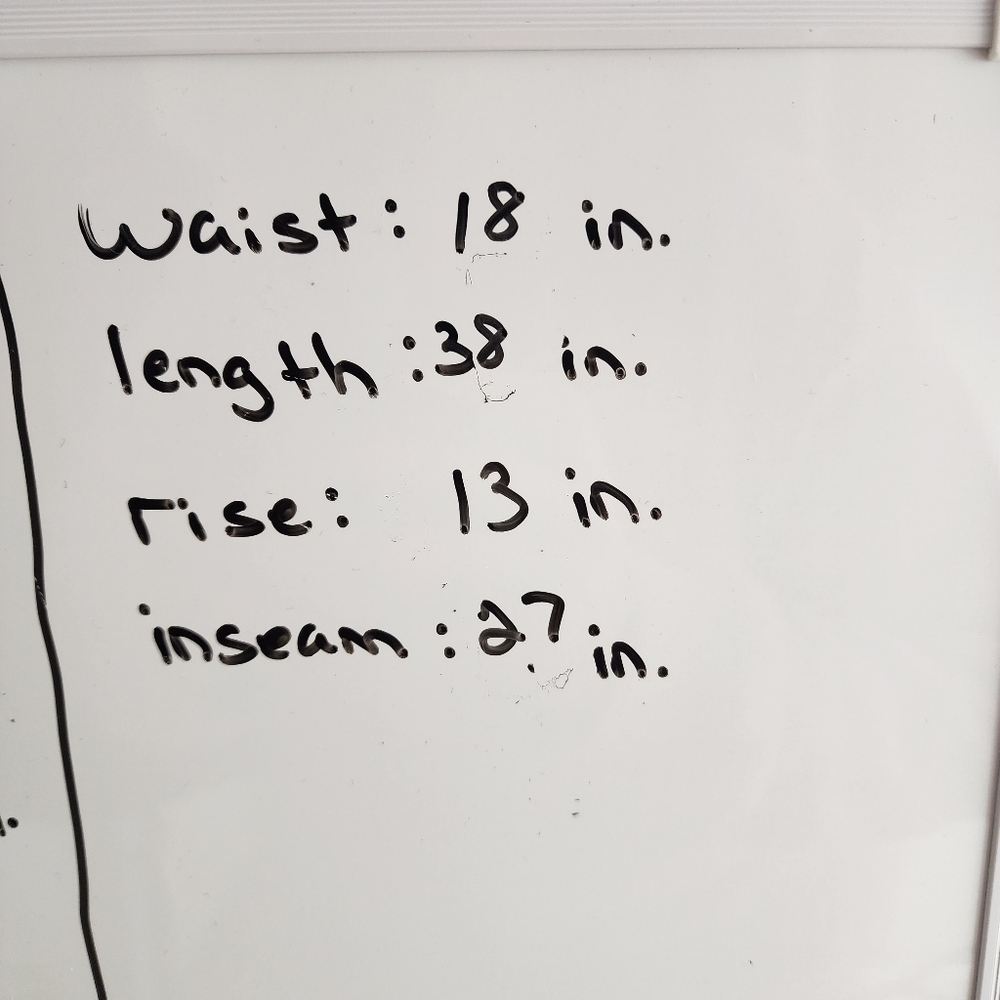 waist: 18 in.
length: 38 in.
rise: 13 in.
inseam: 27 in.